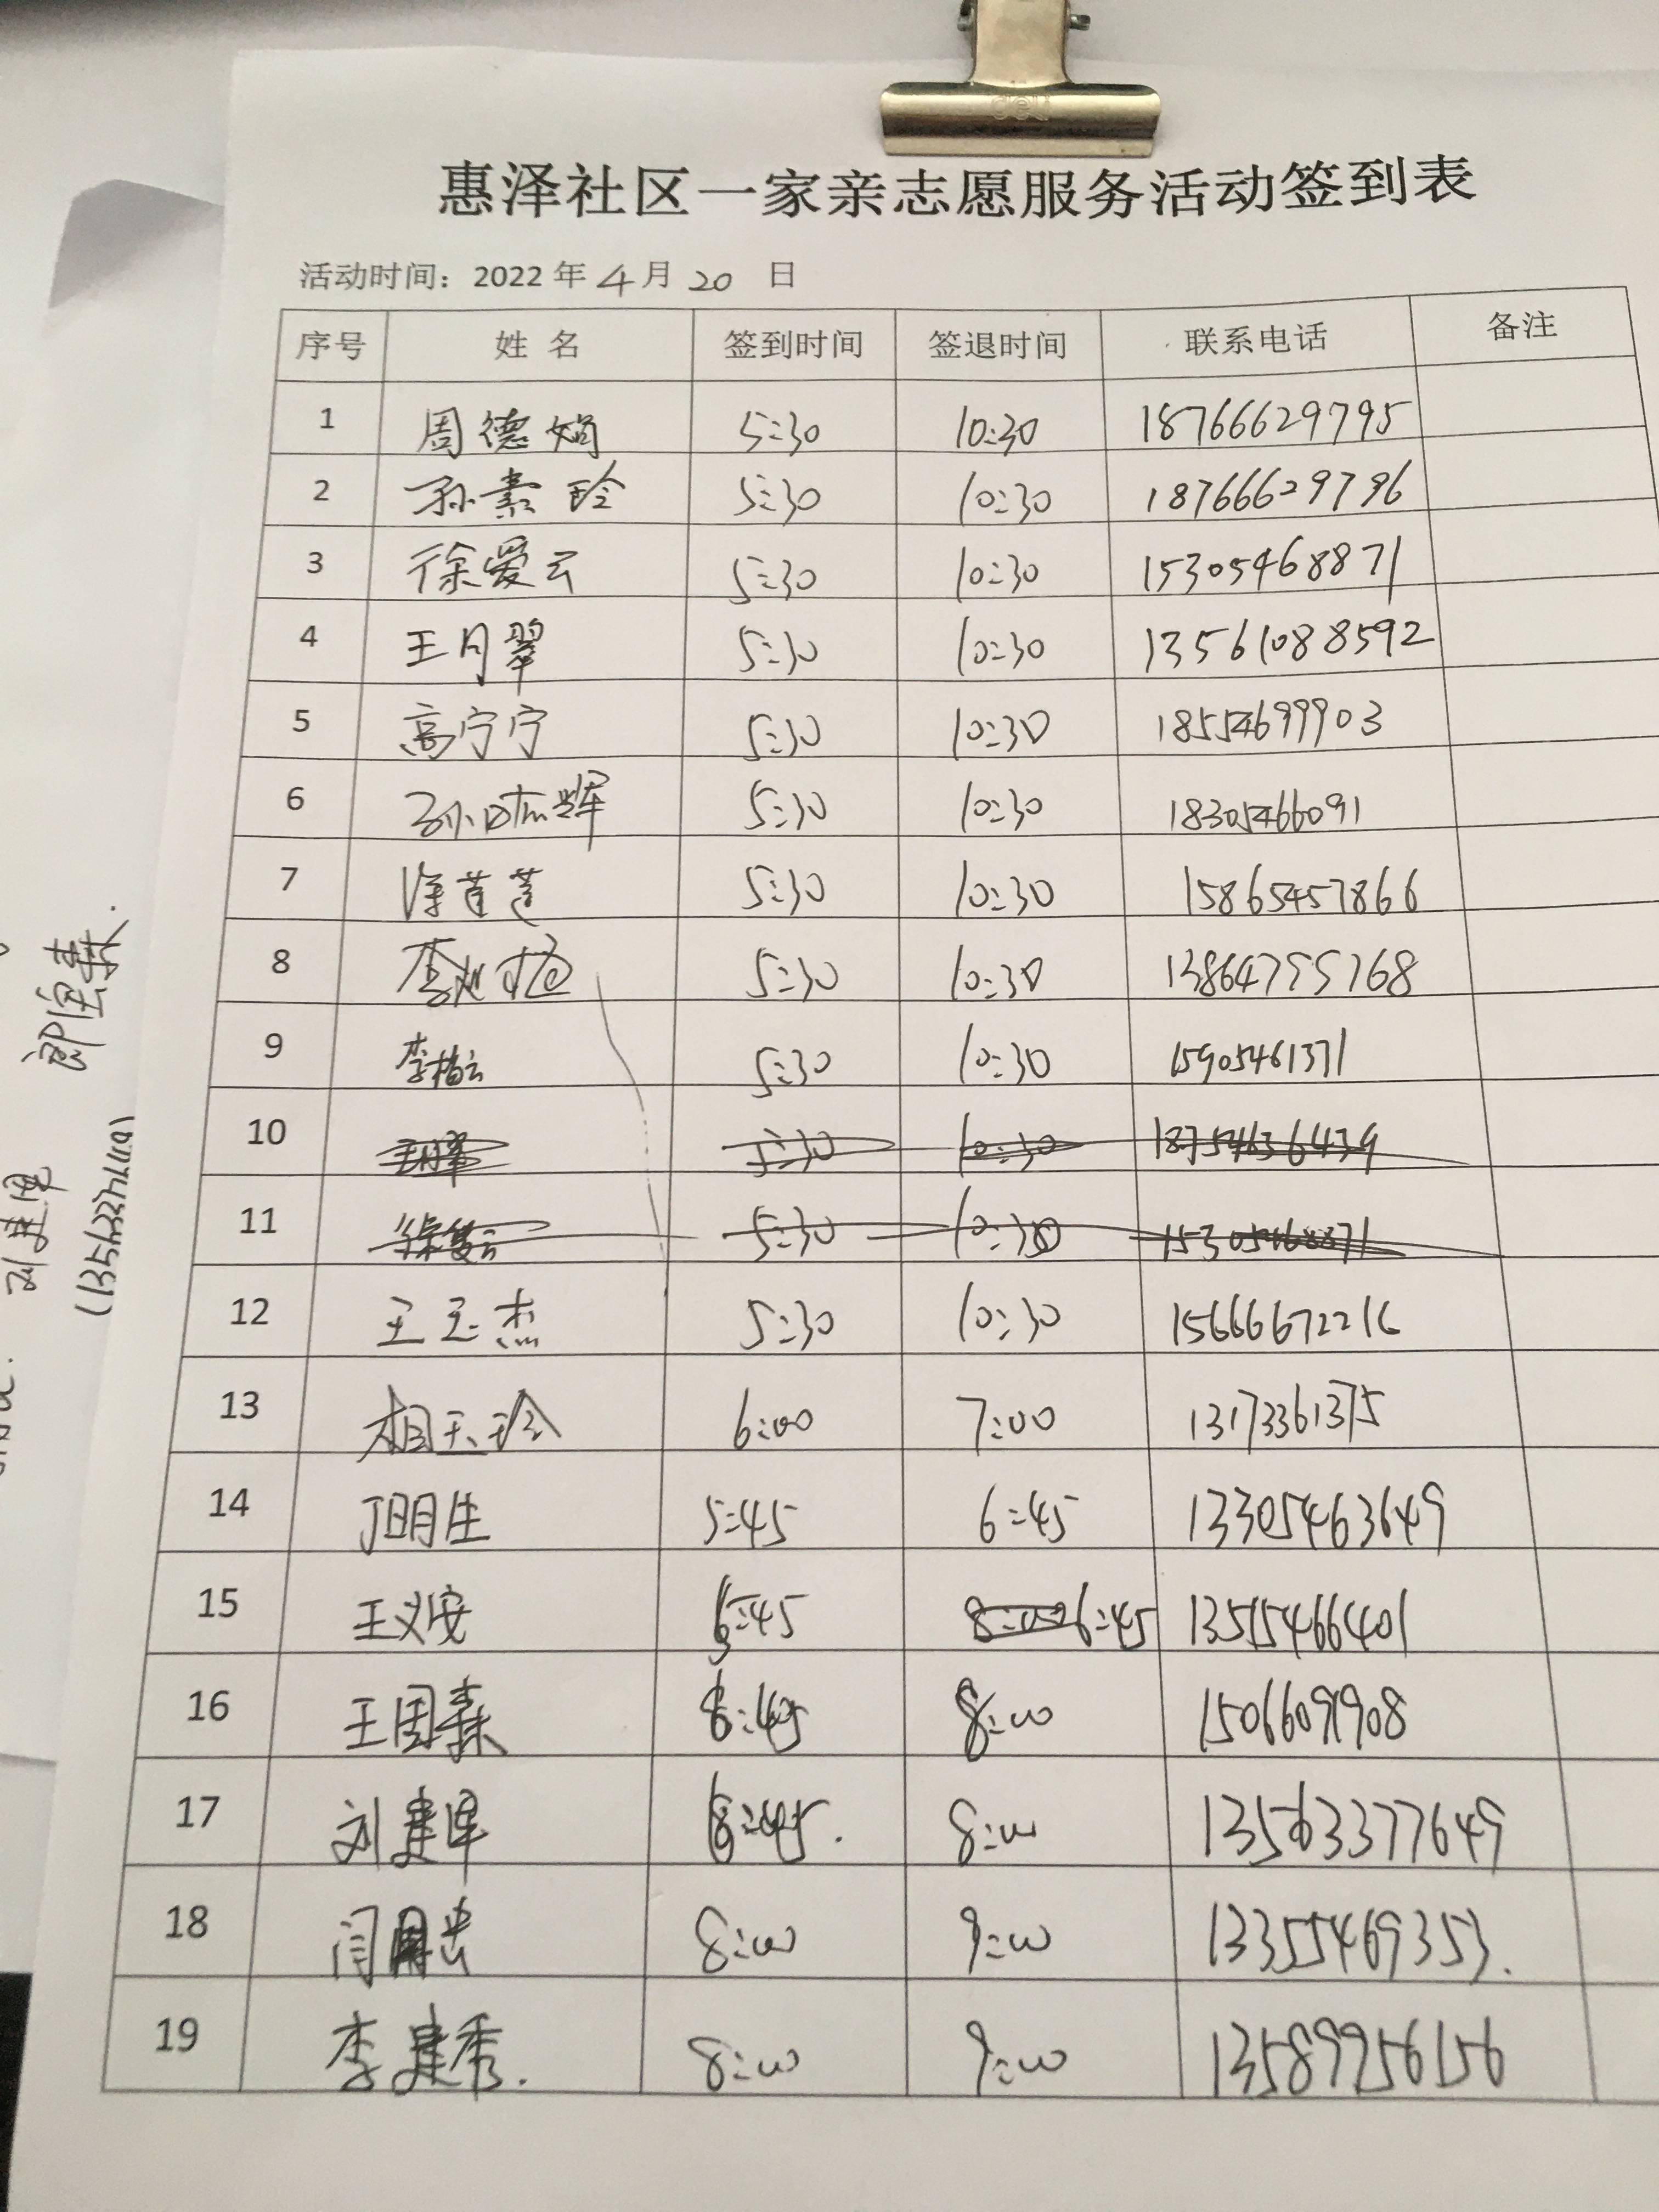 deli
惠泽社区一家亲志愿服务活动签到表
活动时间：2022 年 4 月 20 日
序号 姓 名 签到时间 签退时间 联系电话 备注
1 周德娟 5:30 10:30 18766629795
2 孙素玲 5:30 10:30 18766629796
3 徐爱云 5:30 10:30 15305468871
4 王月翠 5:30 10:30 13561088592
5 高宁宁 5:30 10:30 18554699903
6 5:30 10:30 18305466091
7 5:30 10:30 15865457866
8 5:30 10:30 13864755768
9 李梅云 5:30 10:30 15905461371
10 王月翠 5:30 10:30 18754636439
11 徐爱云 5:30 10:30 15305468871
12 王玉杰 5:30 10:30 15666672216
13 相玉玲 6:00 7:00 13173361375
14 丁明生 5:45 6:45 13305463649
15 王义安 :45 8:00 6:45 13515466401
16 王周森 :45 8:00 15066091908
17 刘建军 :45. 8:00 13563377649
18 闫 8:00 9:00 13355469353.
19 李建秀. 8:00 9:00 13589956156
刘建军
(13563377649)